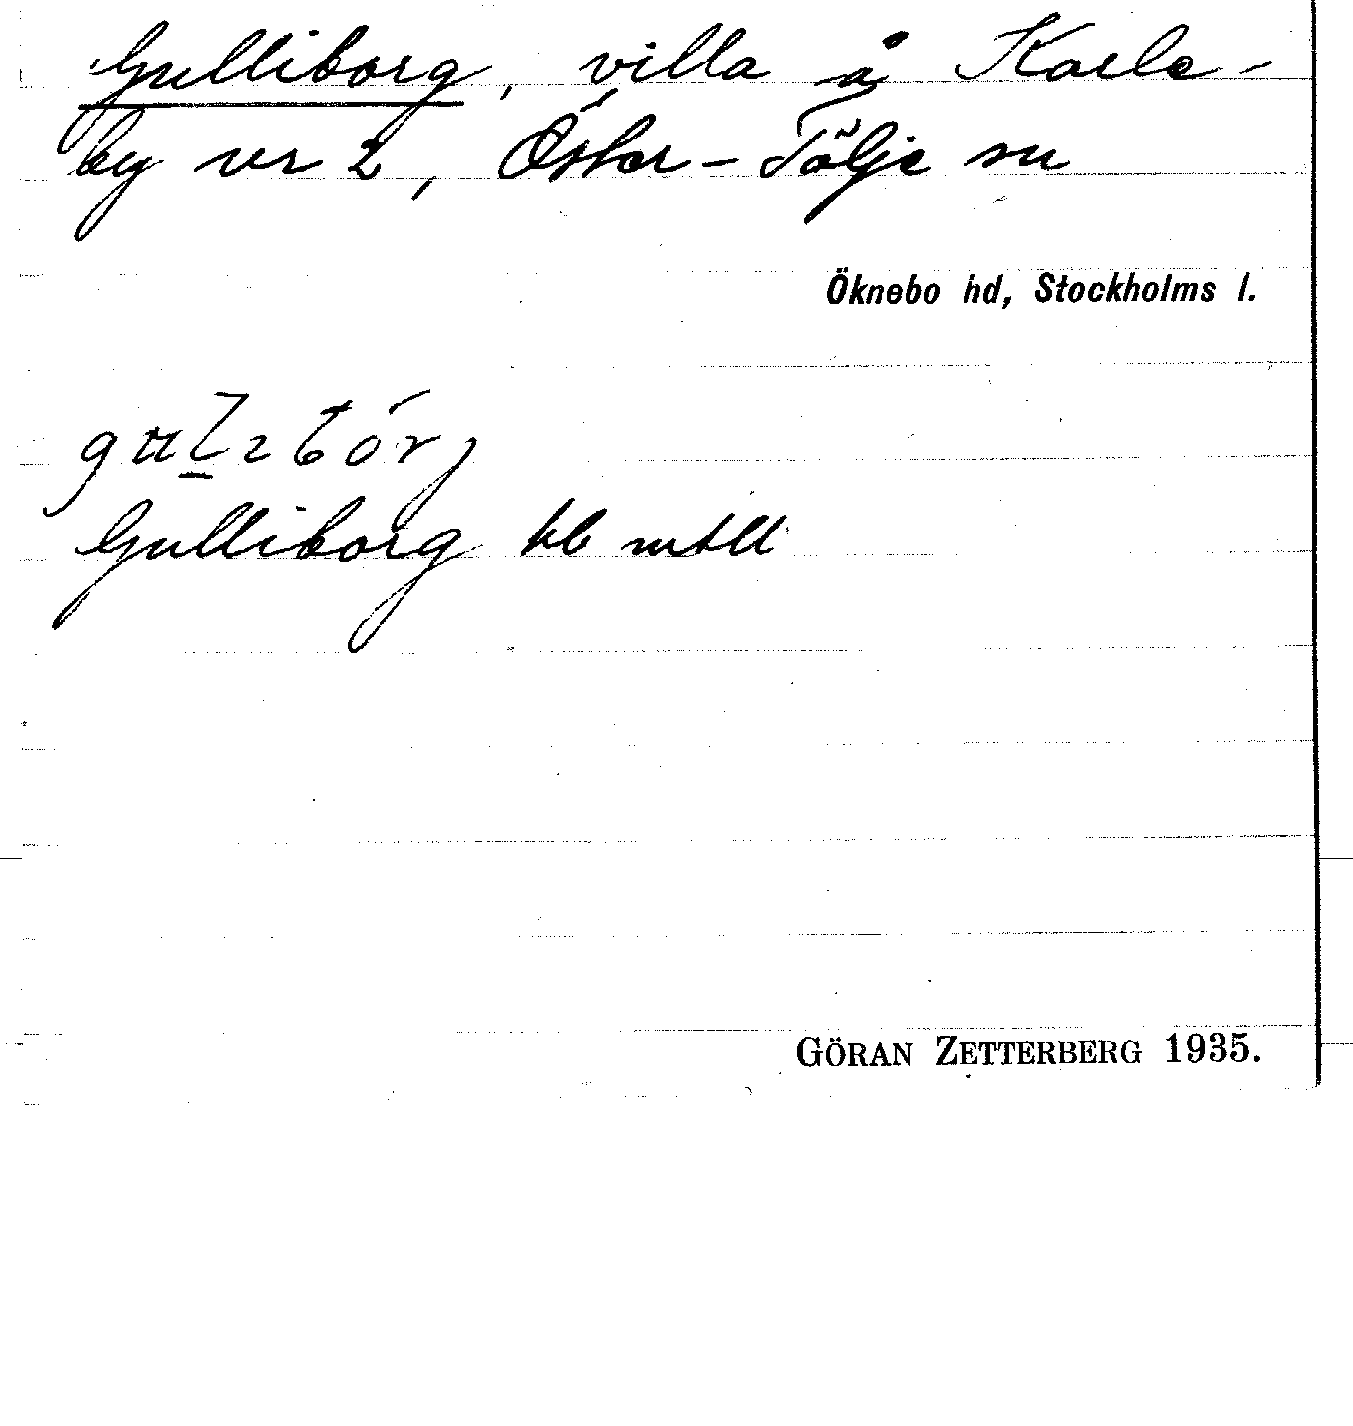 Gulliborg, villa å Karle-
by nr 2, Öster-Tälje sn
Öknebo hd, Stockholms l.
Gulliborg kb mtll
GÖRAN ZETTERBERG 1935.